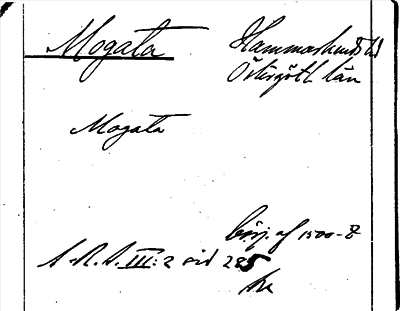 Mogata
Hammarkinds hd
Östergötl. län
Mogata
börj. af 1500-t.
S. R. S. III: 2 sid 285